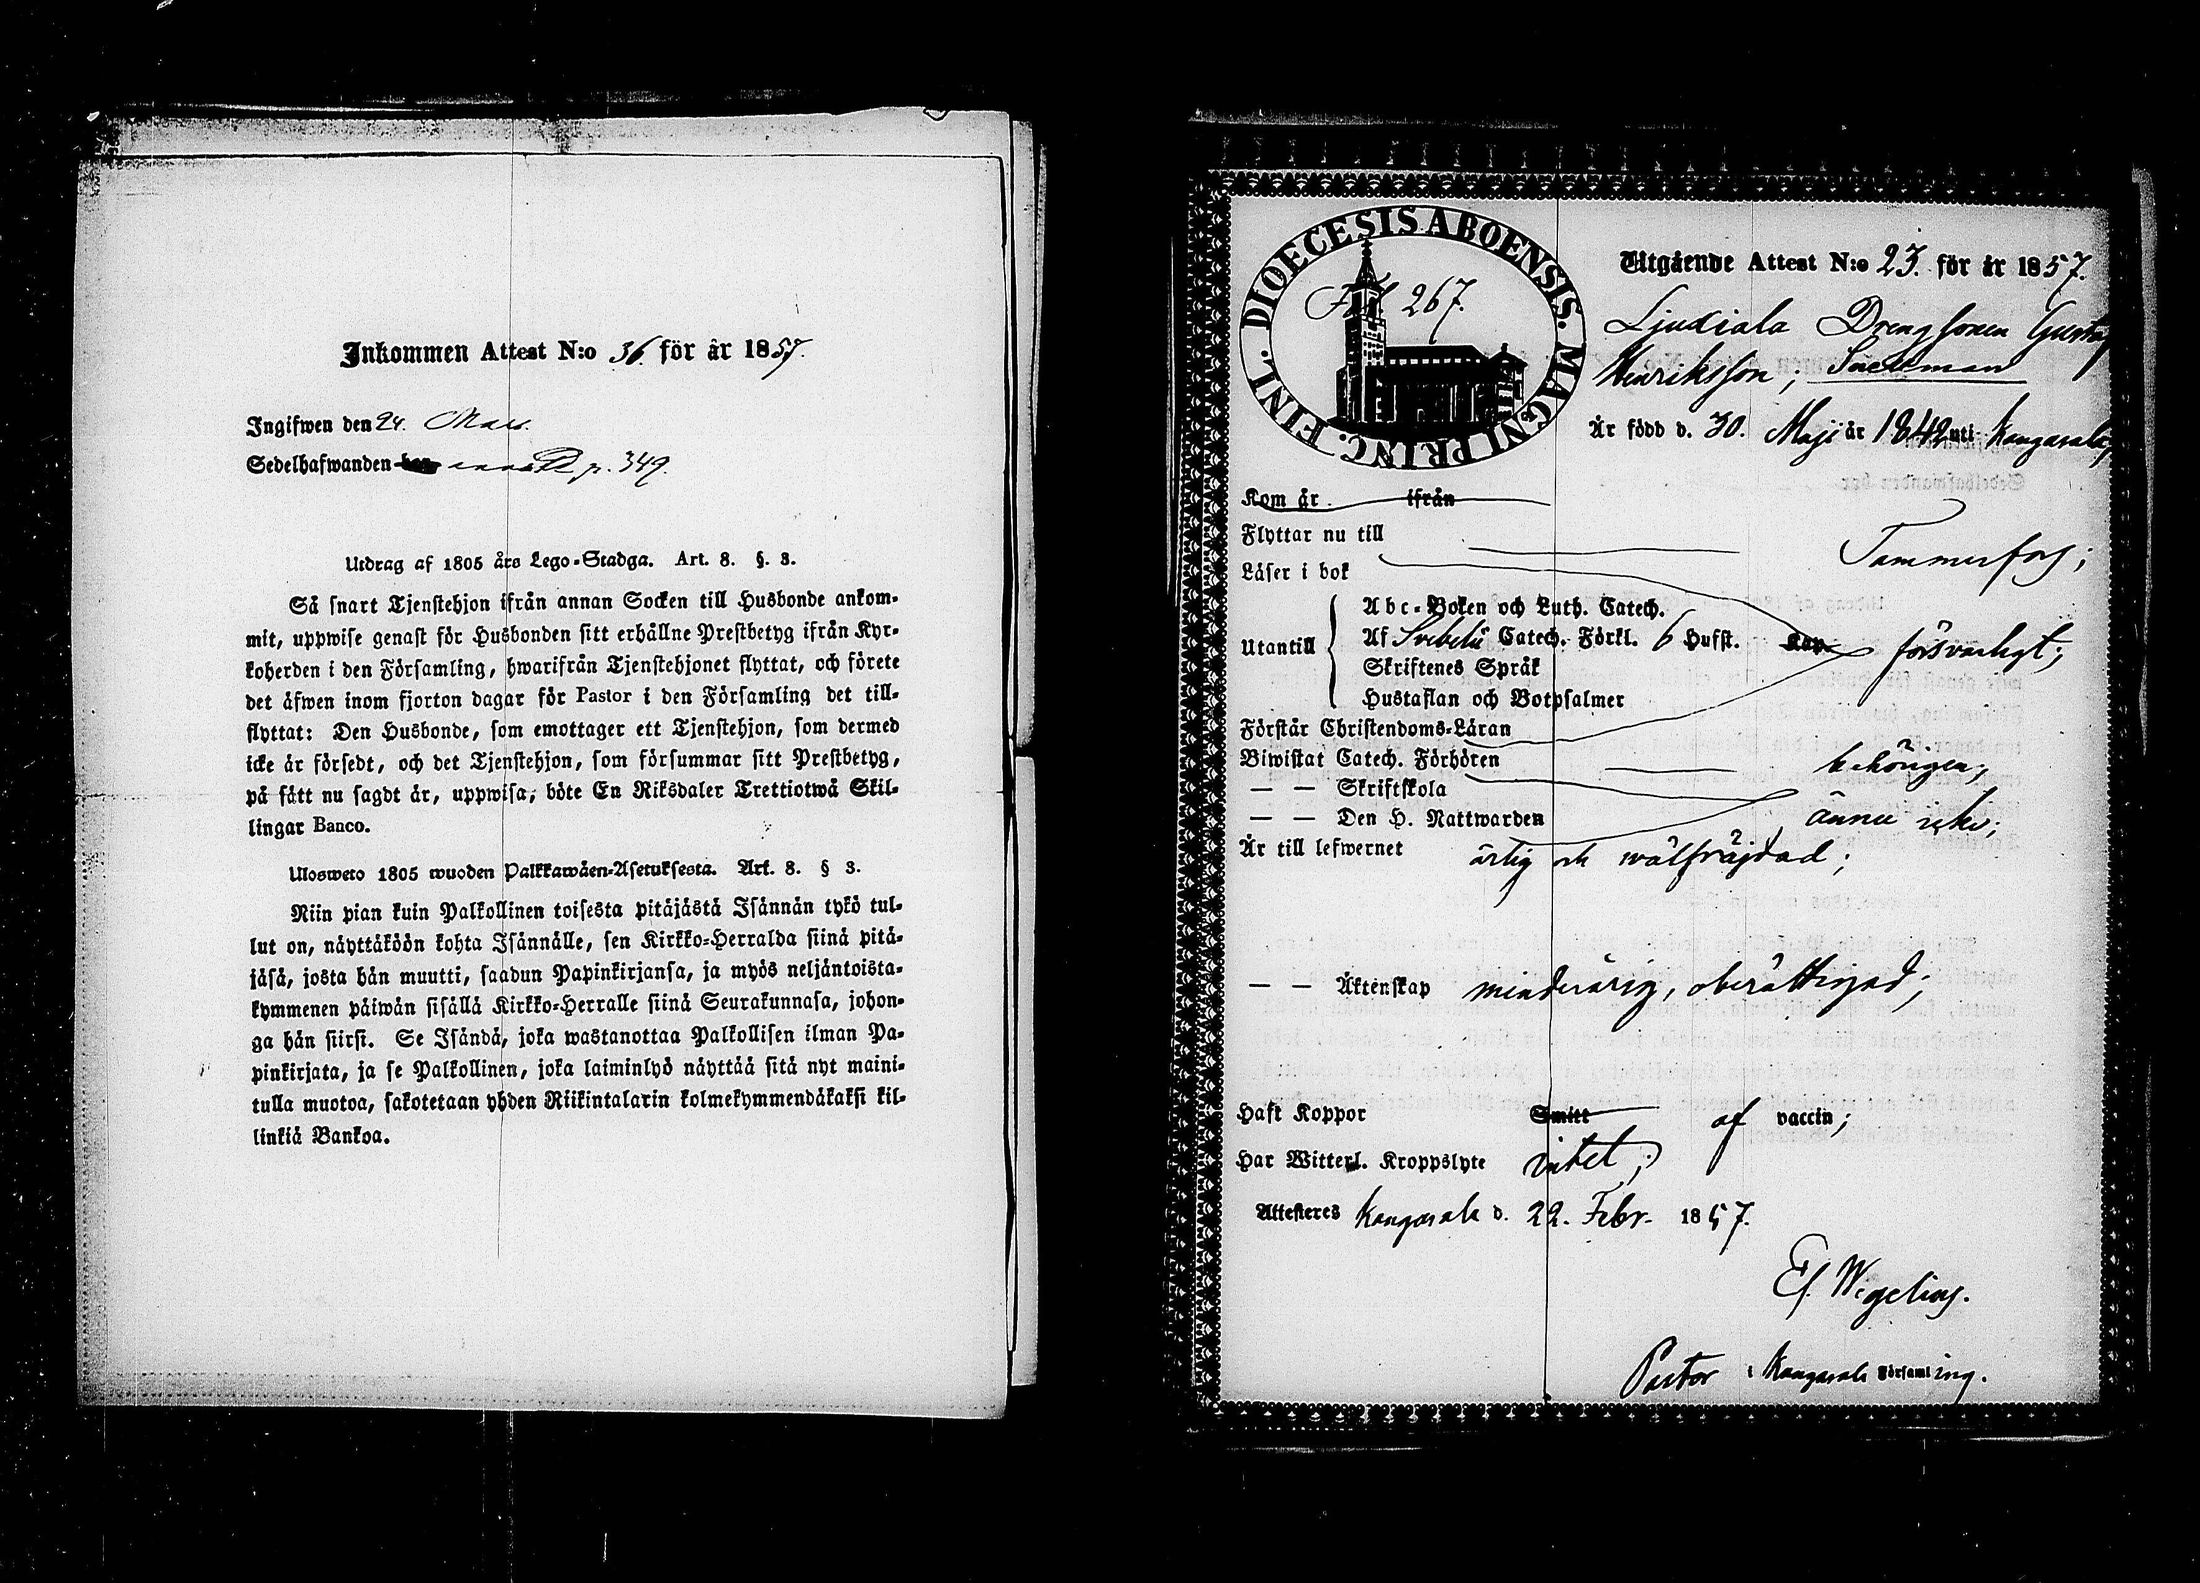 Inkommen Attest N:o 36. för år 1857.
Ingifwen den 24. Mars.
Sedelhafwanden p. 349.
Utdrag af 1805 års Lego-Stadga. Art. 8. §. 3.
Så snart Tjenstehjon ifrån annan Socken till Husbonde ankom-
mit, uppwise genast för Husbonden sitt erhållne Prestbetyg ifrån Kyr-
koherden i den Församling, hwarifrån Tjenstehjonet flyttat, och förete
det äfwen inom fjorton dagar för Pastor i den Församling det till-
flyttat: Den Husbonde, som emottager ett Tjenstehjon, som dermed
icke är försedt, och det Tjenstehjon, som försummar sitt Prestbetyg,
på sätt nu sagdt är, uppwisa, böte En Riksdaler Trettiotwå Skil-
lingar Banco.
Ulosweto 1805 wuoden Palkkawäen-Asetuksesta. Art. 8. § 3.
Niin pian kuin Palkollinen toisesta pitäjästä Isännän tykö tul-
lut on, näyttäköön kohta Isännälle, sen Kirkko-Herralda siinä pitä-
jäsä, josta hän muutti, saadun Papinkirjansa, ja myös neljäntoista-
kymmenen päiwän sisällä Kirkko-Herralle siinä Seurakunnasa, johon-
ga hän siirsi. Se Isändä, joka wastanottaa Palkollisen ilman Pa-
pinkirjata, ja se Palkollinen, joka laiminlyö näyttää sitä nyt maini-
tulla muotoa, sakotetaan yhden Riikintalarin kolmekymmendäkaksi kil-
linkiä Bankoa.
DIOECESIS ABOENSIS. MAGNI PRINC. FINL.
267.
Utgående Attest N:o 23. för år 1857.
Ljudiala Drengsonen Gustaf
Henriksson;
Är född d. 30. Maji år 1842 uti Kangasala,
Kom år . ifrån
Flyttar nu till Tammerfors;
Läser i bok
Abc-Boken och Luth. Catech.
Utantill Af Svebelii Catech. Förkl. 6 Hufst. Kap. försvarligt;
Skriftenes Språk
Hustaflan och Botpsalmer
Förstår Christendoms-Läran
Biwistat Catech. Förhören behörigen;
— — Skriftskola
— — Den H. Nattwarden ännu icke;
Är till lefwernet ärlig och wälfräjdad;
— — Äktenskap minderårig, oberättigad;
Haft Koppor Smitt af vaccin;
Har Witterl. Kroppslyte intet;
Attesteres Kangasala d. 22. Febr. 1857.
Ef. Wegelius.
Pastor i Kangasala Församling.